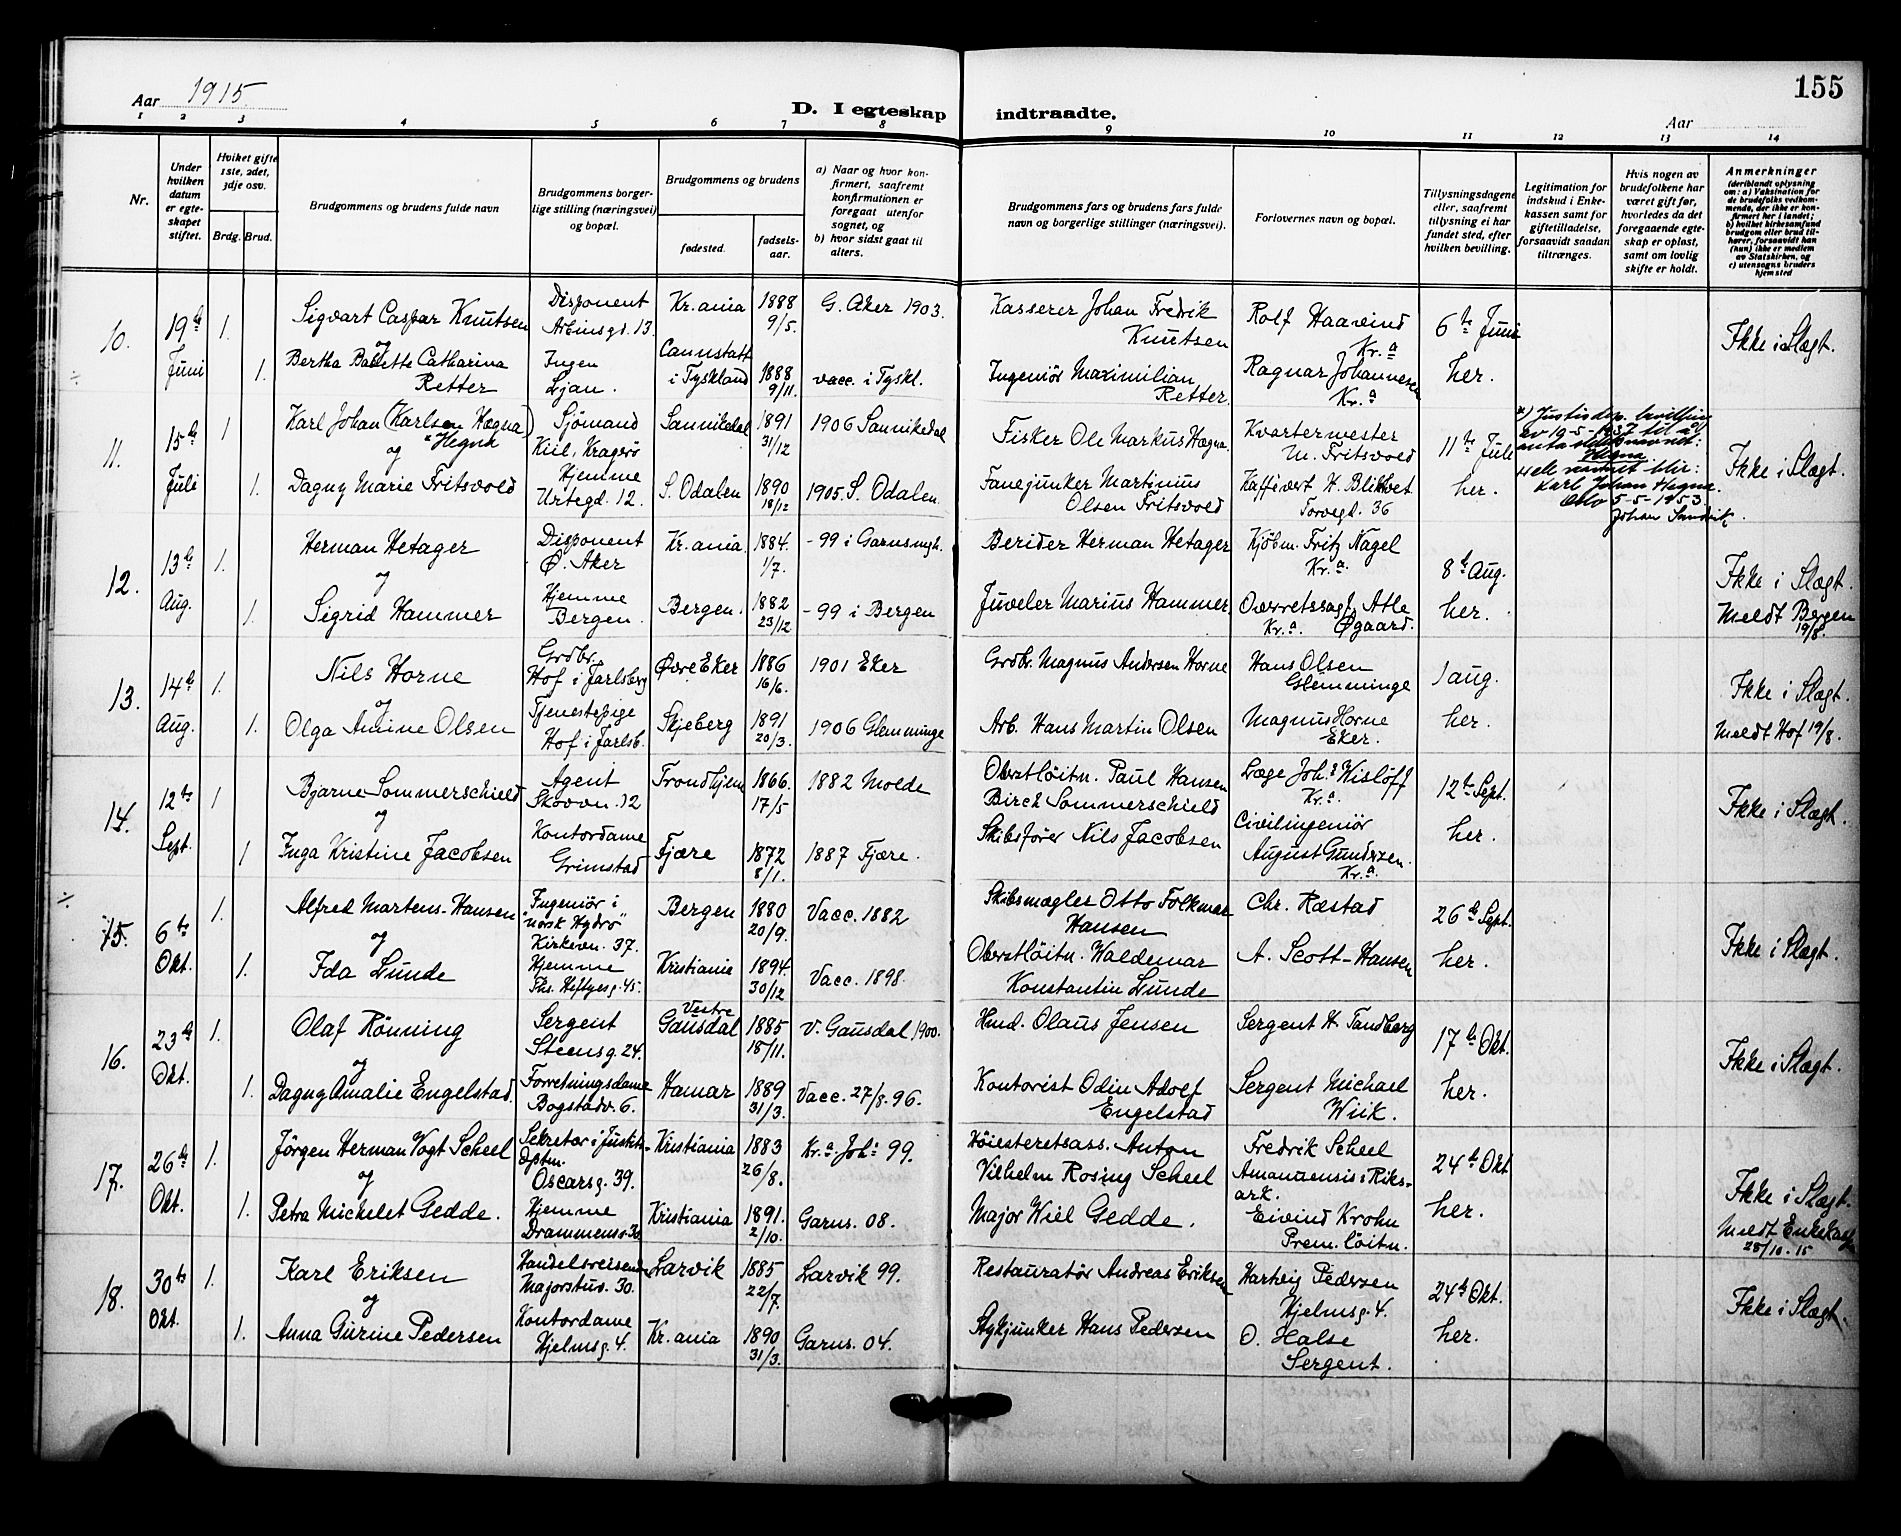 Aar 1915.
D. I egteskap indtraadte.
Aar
155
1 2 3 4 5 6 7 8 9 10 11 12 13 14
Nr.
Under hvilken datum er egteskapet stiftet.
Hvilket gifte 1ste, 2det, 3dje osv.
Brdg. Brud.
Brudgommens og brudens fulde navn
Brudgommens borgerlige stilling (næringsvei) og bopæl.
Brudgommens og brudens
fødested.
fødselsaar.
a) Naar og hvor konfirmert, saafremt konfirmationen er foregaat utenfor sognet, og
b) hvor sidst gaat til alters.
Brudgommens fars og brudens fars fulde navn og borgerlige stillinger (næringsvei).
Forlovernes navn og bopæl.
Tillysningsdagene eller, saafremt tillysning ei har fundet sted, efter hvilken bevilling.
Legitimation for indskud i Enkekassen samt for giftetilladelse, forsaavidt saadan tiltrænges.
Hvis nogen av brudefolkene har været gift før, hvorledes da det foregaaende egteskap er opløst, samt om lovlig skifte er holdt.
Anmerkninger
(deriblandt oplysning om: a) Vaksination for de brudefolks vedkommende, der ikke er konfirmert her i landet;
b) hvilket kirkesamfund brudgom eller brud tilhører, forsaavidt han (hun) ikke er medlem av Statskirken, og
c) utensogns bruders hjemsted
10. 19de Juni 1. Sigvart Caspar Knutsen Disponent Arbinsgd. 13 Kr.ania 1888 9/5. G. Aker 1903. Kasserer Johan Fredrik Knutsen Rolf Haavind Kr.a 6te Juni Ikke i Slægt.
og
1. Bertha Babette Catharina Retter Ingen Ljan. Cannstatt i Tyskland 1888 9/11. vacc. i Tyskl. Ingeniör Maximilian Retter. Ragnar Johannesen Kr.a her.
11. 15de Juli 1 Karl Johan (Karlsen Hægna) x Hegna Sjömand Kiil, Kragerø Sannikedal 1891 31/12 1906 Sannikedal Fisker Ole Markus Hægna. Kvartermester M. Fritsvold 11te Juli Ikke i Slægt.
og
1. Dagny Marie Fritsvold Hjemme Urtegd. 12. S. Odalen 1890 18/12 1905. S. Odalen. Fanejunker Martinius Olsen Fritsvold Kaffivert H. Blikset Torvegd. 36 her.
x) Justisdep. bevilling
av 19-5-1937 til å
anta slektsnavnet:
Hegna
hele navnet blir:
Karl Johan Hegna.
Oslo 5-5-1953
Johan
12. 13de Aug. 1. Herman Hetager Disponent Ø. Aker Kr.ania 1884. 1/7. - 99 i Garns.mgh. Berider Herman Hetager Kjöbm. Fritz Nagel Kr.a. 8de Aug. Ikke i Slægt.
og
1. Sigrid Hammer Hjemme Bergen. Bergen. 1882 23/12 - 99 i Bergen Juveler Marius Hammer. Overretssagf. Atle Øgaard. Kr.a. her. Meldt Bergen 19/8.
13. 14de Aug. 1. Nils Horne Grdbr. Hof i Jarlsberg Øvre Eker 1886 16/6. 1901 Eker Grdbr. Magnus Andersen Horne Hans Olsen Glemminge 1 aug. Ikke i Slægt.
og
1. Olga Amine Olsen Tjenestepige Hof i Jarlsb. Skjeberg 1891 20/3. 1906 Glemminge Arb. Hans Martin Olsen Magnus Horne Eker. her. Meldt Hof 19/8.
14. 12te Sept. 1 Bjarne Sommerschield Agent Skovvn. 12 Trondhjem 1866. 17/5 1882 Molde Oberstlöitn. Paul Hansen Birch Sommerschield Læge Johs. Wislöff Kr.a. 12te Sept. Ikke i Slægt.
og
1 Inga Kristine Jacobsen Kontordame Grimstad Fjære 1872 8/1. 1887 Fjære. Skibsfører Nils Jacobsen Civilingeniör August Gundersen. Kr.a. her.
15. 6te Okt. 1. Alfred Martens-Hansen Ingeniör i "norsk Hydro" Kirkevn. 37. Bergen 1880 20/9. Vacc. 1882 Skibsmægler Otto Folkmar Hansen Chr. Ræstad 26de Sept. Ikke i Slægt.
og
1. Ida Lunde Hjemme Ths. Heftyesg. 45. Kristiania 1894. 30/12 Vacc. 1898. Oberstlöitn. Waldemar Konstantin Lunde A. Scott-Hansen her.
16. 23de Okt. 1. Olaf Rönning Sergent Steensg. 24. Vestre Gausdal 1885 18/11. V. Gausdal 1900. Hmd. Olaus Jensen Sergent H. Tandberg 17de Okt. Ikke i Slægt.
og
1. Dagny Amalie Engelstad. Forretningsdame Bogstadv. 6. Hamar 1889 31/3. Vacc. 27/8. 96. Kontorist Odin Adolf Engelstad Sergent Michael Wiik. her.
17. 26de Okt. 1. Jörgen Herman Vogt Scheel Sekretær i Justits-Dptm. Oscarsg. 39. Kristiania 1883 26/8. Kr.a. Joh: 99. Höiesteretsass. Anton Vilhelm Rosing Scheel Fredrik Scheel Amanuensis i Riksark. 24de Okt Ikke i Slægt.
og
1. Petra Michelet Gedde. Hjemme Drammensv. Kristiania 1891. 2/10. Garns. 08. Major Wiel Gedde. Eivind Krohn Prem. löitn. her. Meldt Enkekas. 28/10. 15
18. 30te Okt. 1. Karl Eriksen Handelsreisende Majorstuv. 30. Larvik 1885 22/7. Larvik 99. Restauratör Andreas Eriksen Hartvig Pedersen Hjelmsg. 4. 24de Okt. Ikke i Slægt.
og
1. Anna Gurine Pedersen Kontordame Hjelmsg. 4. Kr.ania 1890 31/3. Garns. 04. Stykjunker Hans Pedersen O. Halse Sergent. her.